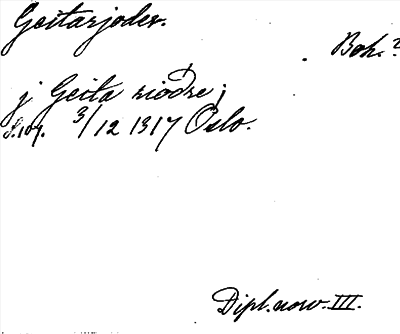 Geitarjoder.
Boh. ?
j Geita rioðre;
S. 109. 3/12 1317 Oslo.
Dipl. norv. III.